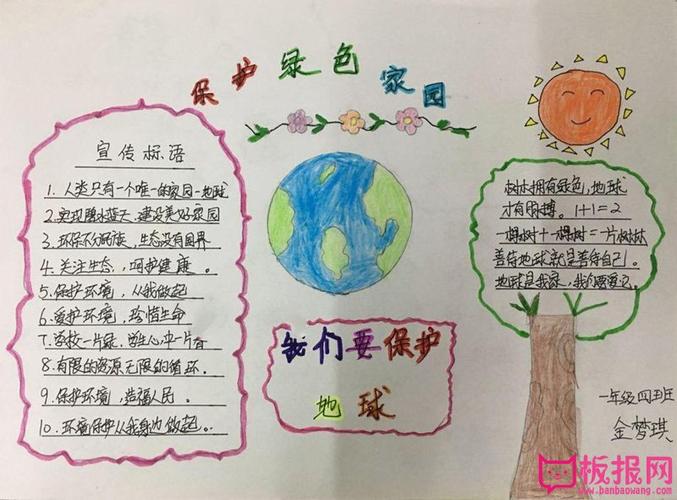 保护绿色家园
宣传标语
1. 人类只有一个唯一的家园—地球
2. 实现碧水蓝天,建设美好家园
3. 环保不分民族,生态没有国界
4. 关注生态,呵护健康。
5. 保护环境,从我做起
6. 爱护环境,珍惜生命
7. 学校一片绿,学生心中一片春
8. 有限的资源无限的循环.
9. 保护环境,造福人民.
10. 环境保护从我身边做起.
我们要保护
地球
树木拥有绿色,地球
才有脉搏。1+1=2
一棵树+一棵树=一片树林
善待地球就是善待自己.
地球是我家,我们要爱它.
一年级四班
金梦琪
板报网
www.banbaowang.com